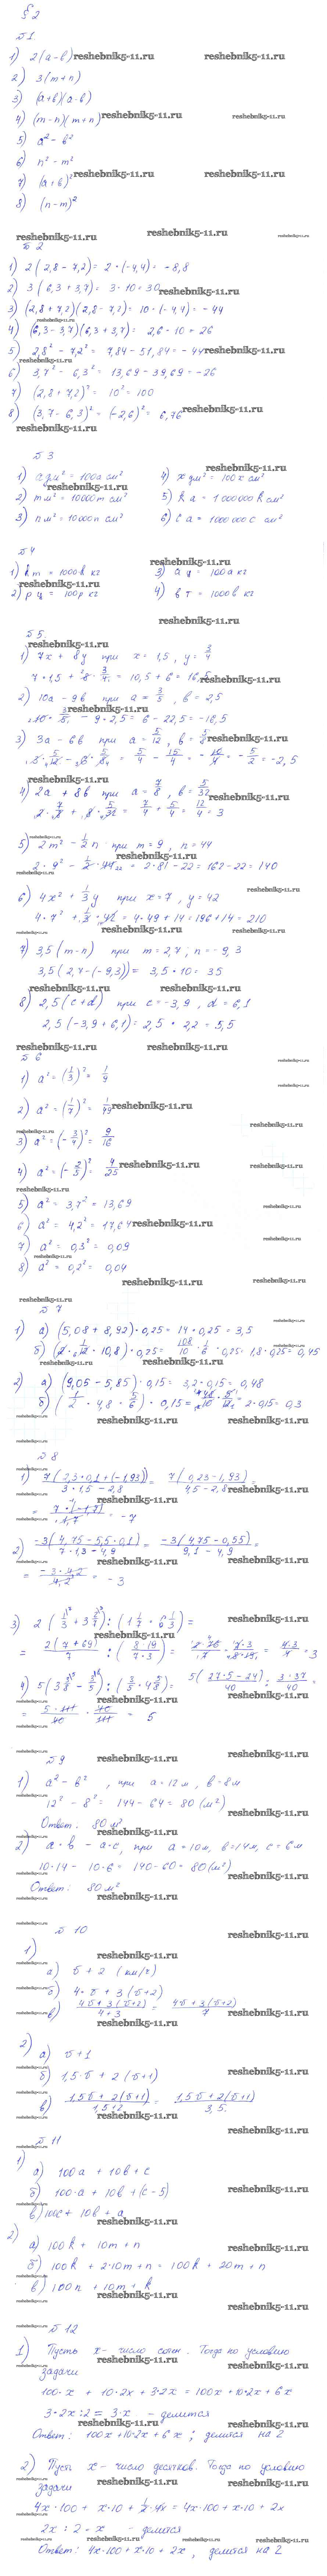 § 2
№ 1.
1) 2(a-b)
2) 3(m+n)
3) (a+b)(a-b)
4) (m-n)(m+n)
5) a² - b²
6) n² - m²
7) (a+b)²
8) (n-m)²
№ 2
1) 2(2,8-7,2) = 2·(-4,4) = -8,8
2) 3(6,3+3,7) = 3·10 = 30
3) (2,8+7,2)(2,8-7,2) = 10·(-4,4) = -44
4) (6,3-3,7)(6,3+3,7) = 2,6·10 = 26
5) 2,8² - 7,2² = 7,84-51,84 = -44
6) 3,7² - 6,3² = 13,69-39,69 = -26
7) (2,8+7,2)² = 10² = 100
8) (3,7-6,3)² = (-2,6)² = 6,76
№ 3
1) a дм² = 100a см²
2) m м² = 10000m см²
3) n м² = 10000n см²
4) x дм² = 100x см²
5) k a = 1000000k см²
6) c a = 1000000c см²
№ 4
1) k т = 1000k кг
2) p ц = 100p кг
3) a ц = 100a кг
4) b т = 1000b кг
№ 5.
1) 7x + 8y при x = 1,5, y = 3/4
7·1,5 + 8·3/4 = 10,5+6 = 16,5
2) 10a - 9b при a = 3/5, b = 2,5
10·3/5 - 9·2,5 = 6-22,5 = -16,5
3) 3a - 6b при a = 5/12, b = 5/8
3·5/12 - 6·5/8 = 5/4 - 15/4 = -10/4 = -5/2 = -2,5
4) 2a + 8b при a = 7/8, b = 5/32
2·7/8 + 8·5/32 = 7/4 + 5/4 = 12/4 = 3
5) 2m² - 1/2 n при m = 9, n = 44
2·9² - 1/2·44 = 2·81-22 = 162-22 = 140
6) 4x² + 1/3 y при x = 7, y = 42
4·7² + 1/3·42 = 4·49+14 = 196+14 = 210
7) 3,5(m-n) при m = 2,7; n = -9,3
3,5(2,7-(-9,3)) = 3,5·10 = 35
8) 2,5(c+d) при c = -3,9, d = 6,1
2,5(-3,9+6,1) = 2,5·2,2 = 5,5
№ 6
1) a² = (1/3)² = 1/9
2) a² = (1/7)² = 1/49
3) a² = (-3/4)² = 9/16
4) a² = (-2/5)² = 4/25
5) a² = 3,7² = 13,69
6) a² = 4,2² = 17,64
7) a² = 0,3² = 0,09
8) a² = 0,2² = 0,04
№ 7
1) а) (5,08+8,92)·0,25 = 14·0,25 = 3,5
2) а) (9,05-5,85)·0,15 = 3,2·0,15 = 0,48
№ 8
1) 7(2,3·0,1+(-1,93))/3·1,5-2,8 = 7(0,23-1,93)/4,5-2,8 =
= 7·(-1,7)/1,7 = -7
2) -3(4,75-5,5·0,1)/7·1,3-4,9 = -3(4,75-0,55)/9,1-4,9 =
= -3·4,2/4,2 = -3
№ 9
1) a² - b², при a = 12 м, b = 8 м
12² - 8² = 144-64 = 80 (м²)
Ответ: 80 м²
2) a·b - a·c, при a = 10 м, b = 14 м, c = 6 м
10·14 - 10·6 = 140-60 = 80 (м²)
Ответ: 80 м²
№ 10
1)
а) v + 2 (км/ч)
б) 4·v + 3(v+2)
в) 4v+3(v+2)/4+3 = 4v+3(v+2)/7
2)
а) v+1
б) 1,5·v + 2(v+1)
в) 1,5v+2(v+1)/1,5+2 = 1,5v+2(v+1)/3,5.
№ 11
1)
а) 100a + 10b + c
б) 100·a + 10b + (c-5)
в) 100c + 10b + a
2)
а) 100k + 10m + n
б) 100k + 2·10m + n = 100k + 20m + n
в) 100n + 10m + k
№ 12
1) Пусть x - число сотен. Тогда по условию
задачи
100·x + 10·2x + 3·2x = 100x+10·2x+6x
3·2x:2 = 3·x - делится
Ответ: 100x+10·2x+6x; делится на 2
2) Пусть x - число десятков. Тогда по условию
задачи
4x·100 + x·10 + 1/2·4x = 4x·100+x·10+2x
2x : 2 = x - делится
Ответ: 4x·100+x·10+2x, делится на 2
reshebnik5-11.ru